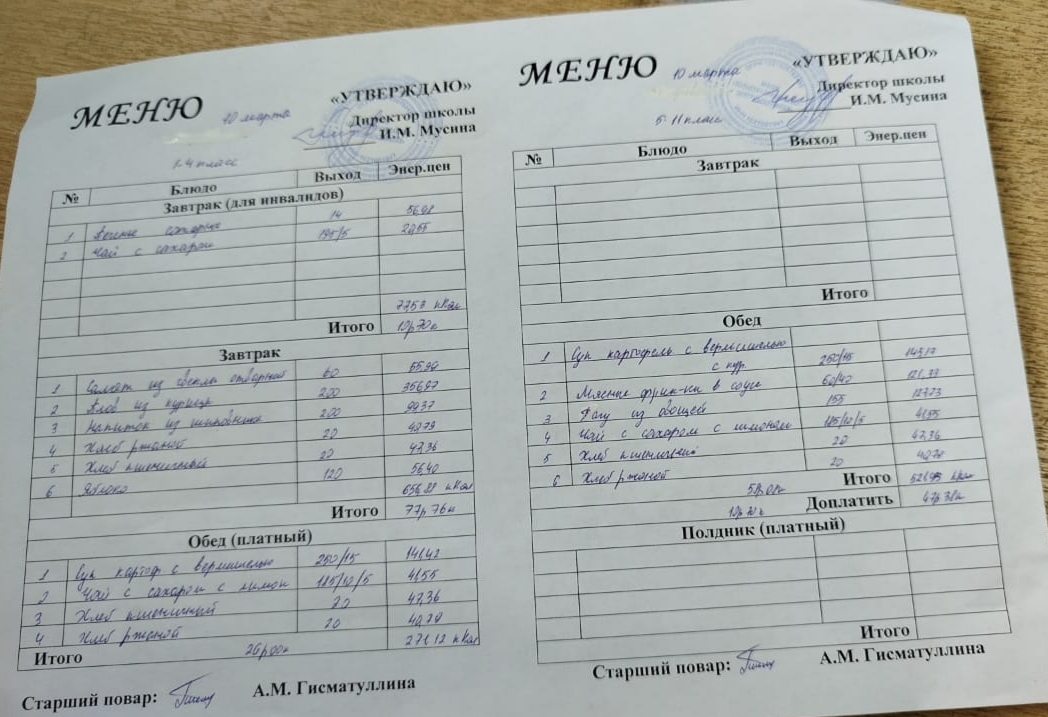 МЕНЮ
10 марта
«УТВЕРЖДАЮ»
Директор школы
И.М. Мусина
1-4 класс
№ Блюдо Выход Энер.цен
Завтрак (для инвалидов)
1 сахарное 14
2 Чай с сахаром 195/5
77,53 кКал
Итого 10р70к
Завтрак
1 Салат из свеклы отварной 60
2 Плов из курицы 200
3 Напиток из шиповника 200
4 Хлеб ржаной 20
5 Хлеб пшеничный 20 47,36
6 Яблоко 120 56,40
кКал
Итого 77р76к
Обед (платный)
1 Суп картоф с вермишелью 250/15 141,42
2 Чай с сахаром с лимон 185/10/5 41,55
3 Хлеб пшеничный 20 47,36
4 Хлеб ржаной 20
Итого 26р00к 271,12 кКал
Старший повар:
А.М. Гисматуллина
МЕНЮ
10 марта
«УТВЕРЖДАЮ»
Директор школы
И.М. Мусина
5-11 класс
№ Блюдо Выход Энер.цен
Завтрак
Итого
Обед
1 Суп картофель с вермишелью
с кур. 250/15
2 Мясные фрик-ки в соусе 60/40
3 Рагу из овощей 155
4 Чай с сахаром с лимоном 185/10/5 41,55
5 Хлеб пшеничный 20 47,36
6 Хлеб ржаной 20
Итого
Доплатить
Полдник (платный)
Итого
Старший повар:
А.М. Гисматуллина